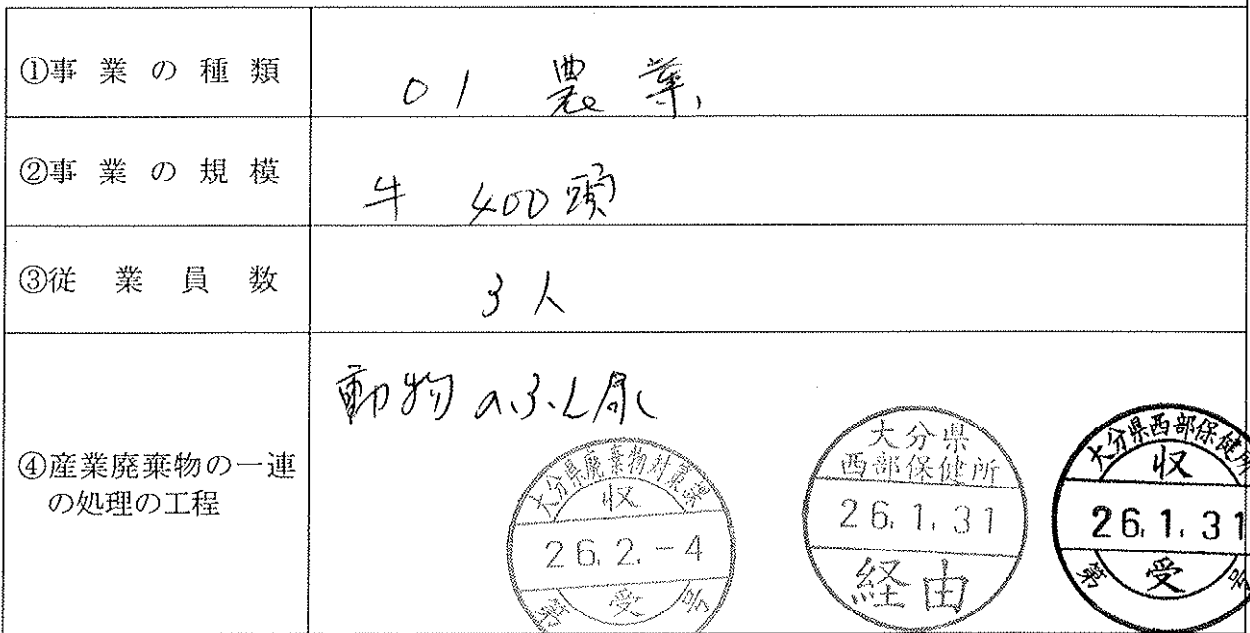 ①事業の種類
01 農業
②事業の規模
牛 400頭
③従業員数
3人
④産業廃棄物の一連
の処理の工程
動物のふん尿
大分県廃棄物対策課
収
26.2.-4
第 受 号
大分県
西部保健所
26.1.31
経由
大分県西部保健所
収
26.1.31
第 受 号